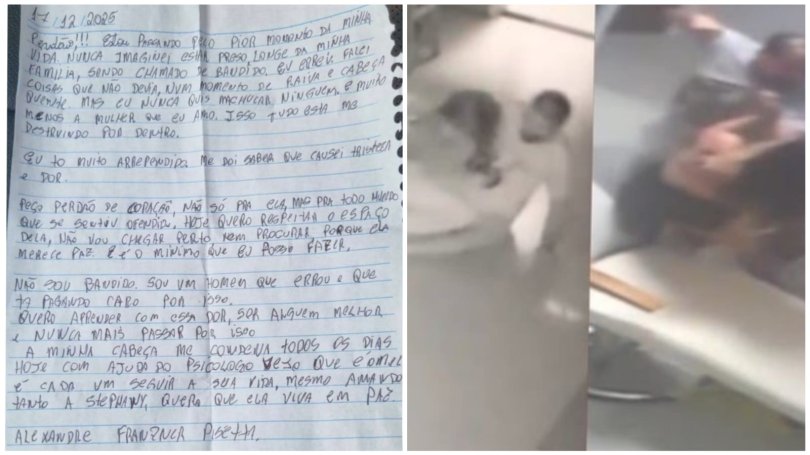 17/12/2025
Perdão!!! Estou passando pelo pior momento da minha
vida. Nunca imaginei estar preso, longe da minha
família, sendo chamado de bandido. Eu errei, falei
coisas que não devia, num momento de raiva e cabeça
quente, mas eu nunca quis machucar ninguém, e muito
menos a mulher que eu amo. Isso tudo está me
destruindo por dentro.
Eu to muito arrependido. Me doi saber que causei tristeza
e dor.
Peço perdão de coração, não só pra ela, mas pra todo mundo
que se sentiu ofendido. Hoje quero respeitar o espaço
dela, não vou chegar perto nem procurar porque ela
merece paz. E é o mínimo que eu posso fazer.
Não sou bandido. Sou um homem que errou e que
ta pagando caro por isso.
Quero aprender com essa dor, ser alguem melhor
e nunca mais passar por isso
A minha cabeça me condena todos os dias
Hoje com ajuda do psicologo vejo que
é cada um seguir a sua vida, mesmo amando
tanto a Stephany, quero que ela viva em paz.
Alexandre